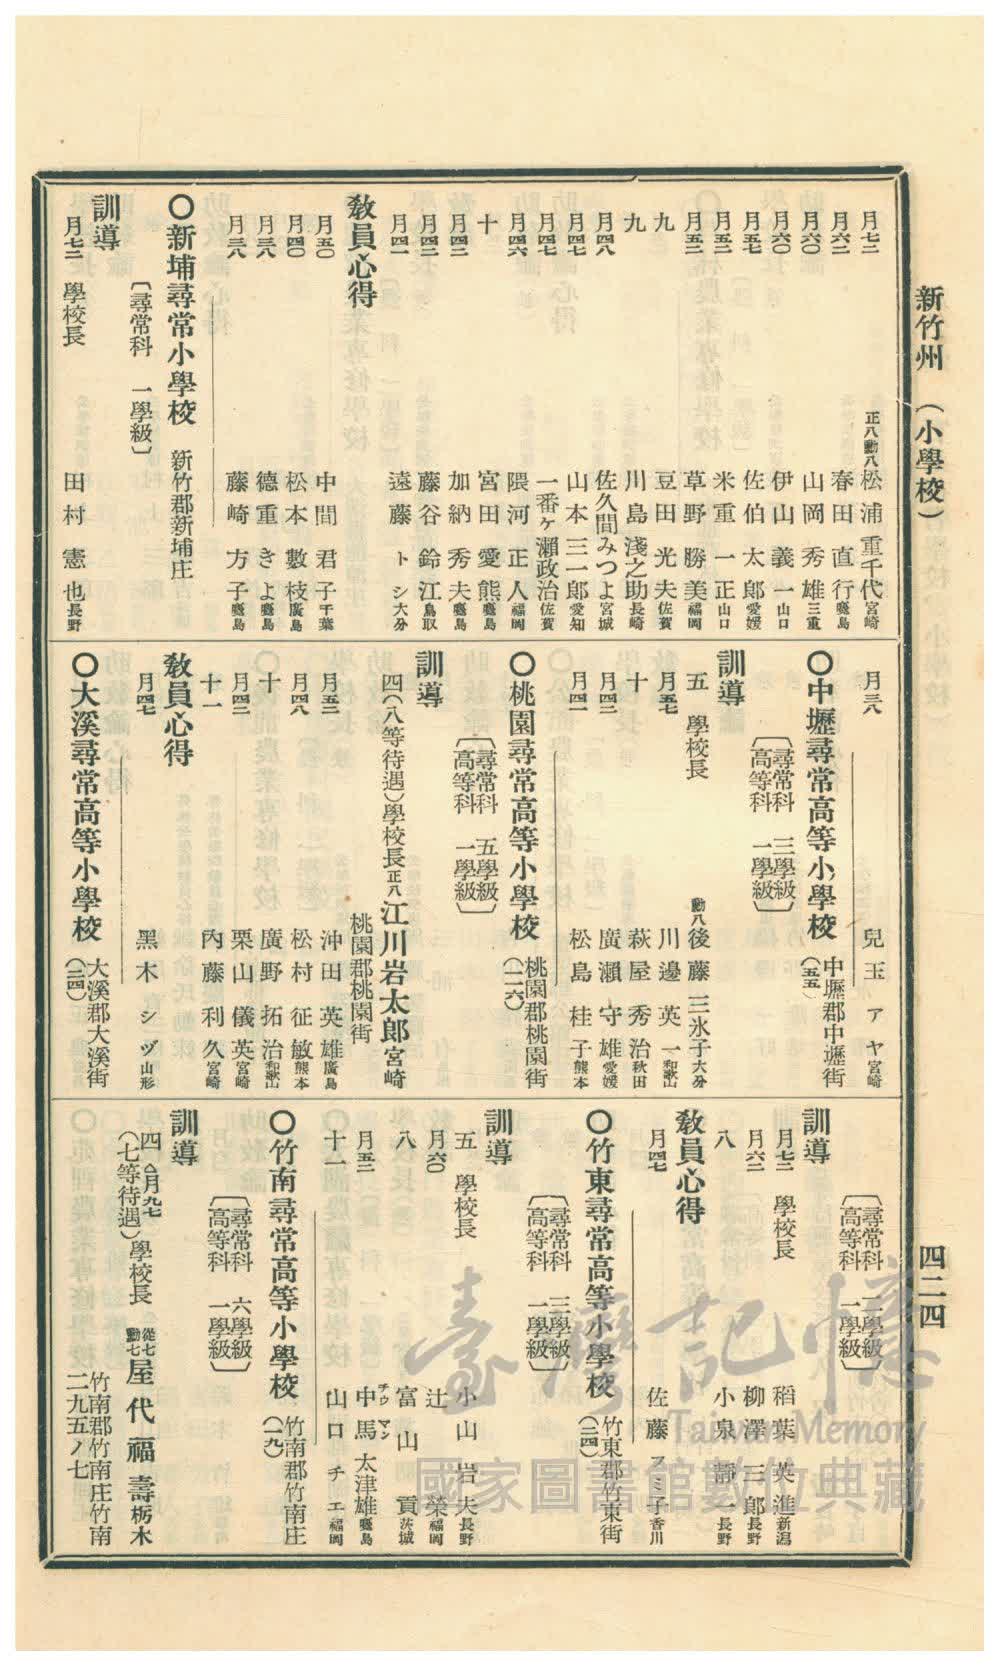 新竹州 (小學校)
四二四
月七二 正八勳八 松浦重千代 宮崎
月六二 春田直行 鹿兒島
月六〇 山岡秀雄 三重
月六〇 伊山義一 山口
月五七 佐伯太郎 愛媛
月五二 米重一正 山口
月五二 草野勝美 福岡
九 豆田光夫 佐賀
九 川島淺之助 長崎
月四八 佐久間みつよ 宮城
月四七 一番ヶ瀨政治 佐賀
月四七 山本三一郎 愛知
月四六 隈河正人 福岡
十 宮田愛熊 鹿兒島
月四三 加納秀夫 鹿兒島
月四二 藤谷鈴江 鳥取
月四一 遠藤トシ 大分
敎員心得
月五〇 中間君子 千葉
月四〇 松本數枝 廣島
月三八 德重きよ 鹿兒島
月三八 藤崎方子 鹿兒島
〇新埔尋常小學校 新竹郡新埔庄
〔尋常科 一學級〕
訓導
月七二 學校長 田村憲也 長野
月三八 兒玉アヤ 宮崎
〇中壢尋常高等小學校 中壢郡中壢街 (五五)
〔尋常科 三學級
高等科 一學級〕
訓導
五 學校長 勳八 後藤三氷子 大分
月五七 川邊英一 和歌山
十 萩屋秀治 秋田
月四二 廣瀨守雄 愛媛
月四一 松島桂子 熊本
〇桃園尋常高等小學校 桃園郡桃園街 (二六)
〔尋常科 五學級
高等科 一學級〕
訓導
四(八等待遇)學校長 正八 江川岩太郎 宮崎
桃園郡桃園街
月五二 沖田英雄 廣島
月四八 松村征敏 熊本
十 廣野拓治 和歌山
月四二 栗山儀英 宮崎
十一 內藤利久 宮崎
敎員心得
月四七 黑木シヅ 山形
〇大溪尋常高等小學校 大溪郡大溪街 (三四)
〔尋常科 二學級
高等科 一學級〕
訓導
月七二 學校長 稻葉英進 新潟
月六二 柳澤三郎 長野
八 小泉靜一 長野
敎員心得
月四七 佐藤スミ子 香川
〇竹東尋常高等小學校 竹東郡竹東街 (三四)
〔尋常科 三學級
高等科 一學級〕
訓導
五 學校長 小山岩夫 長野
月六〇 辻榮 福岡
八 富山貢 茨城
月五二 中馬太津雄 鹿兒島
チウマン
十一 山口チエ 福岡
〇竹南尋常高等小學校 竹南郡竹南庄 (一九)
〔尋常科 六學級
高等科 一學級〕
訓導
四 月九七
(七等待遇)學校長 從七勳七 屋代福壽 栃木
竹南郡竹南庄竹南
二九五ノ七
臺灣記憶
Taiwan Memory
國家圖書館數位典藏